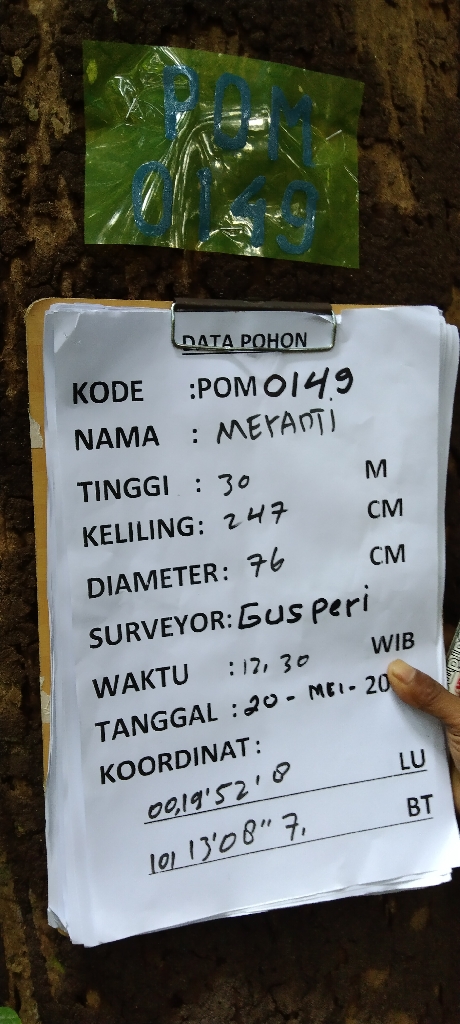 POM
0149
DATA POHON
KODE :POM0149
NAMA : MERANTI
TINGGI : 30 M
KELILING: 247 CM
DIAMETER: 76 CM
SURVEYOR: Gusperi
WAKTU : 12,30 WIB
TANGGAL : 20 - MEI - 20
KOORDINAT:
00,19'52'8 LU
101 13'08"7, BT